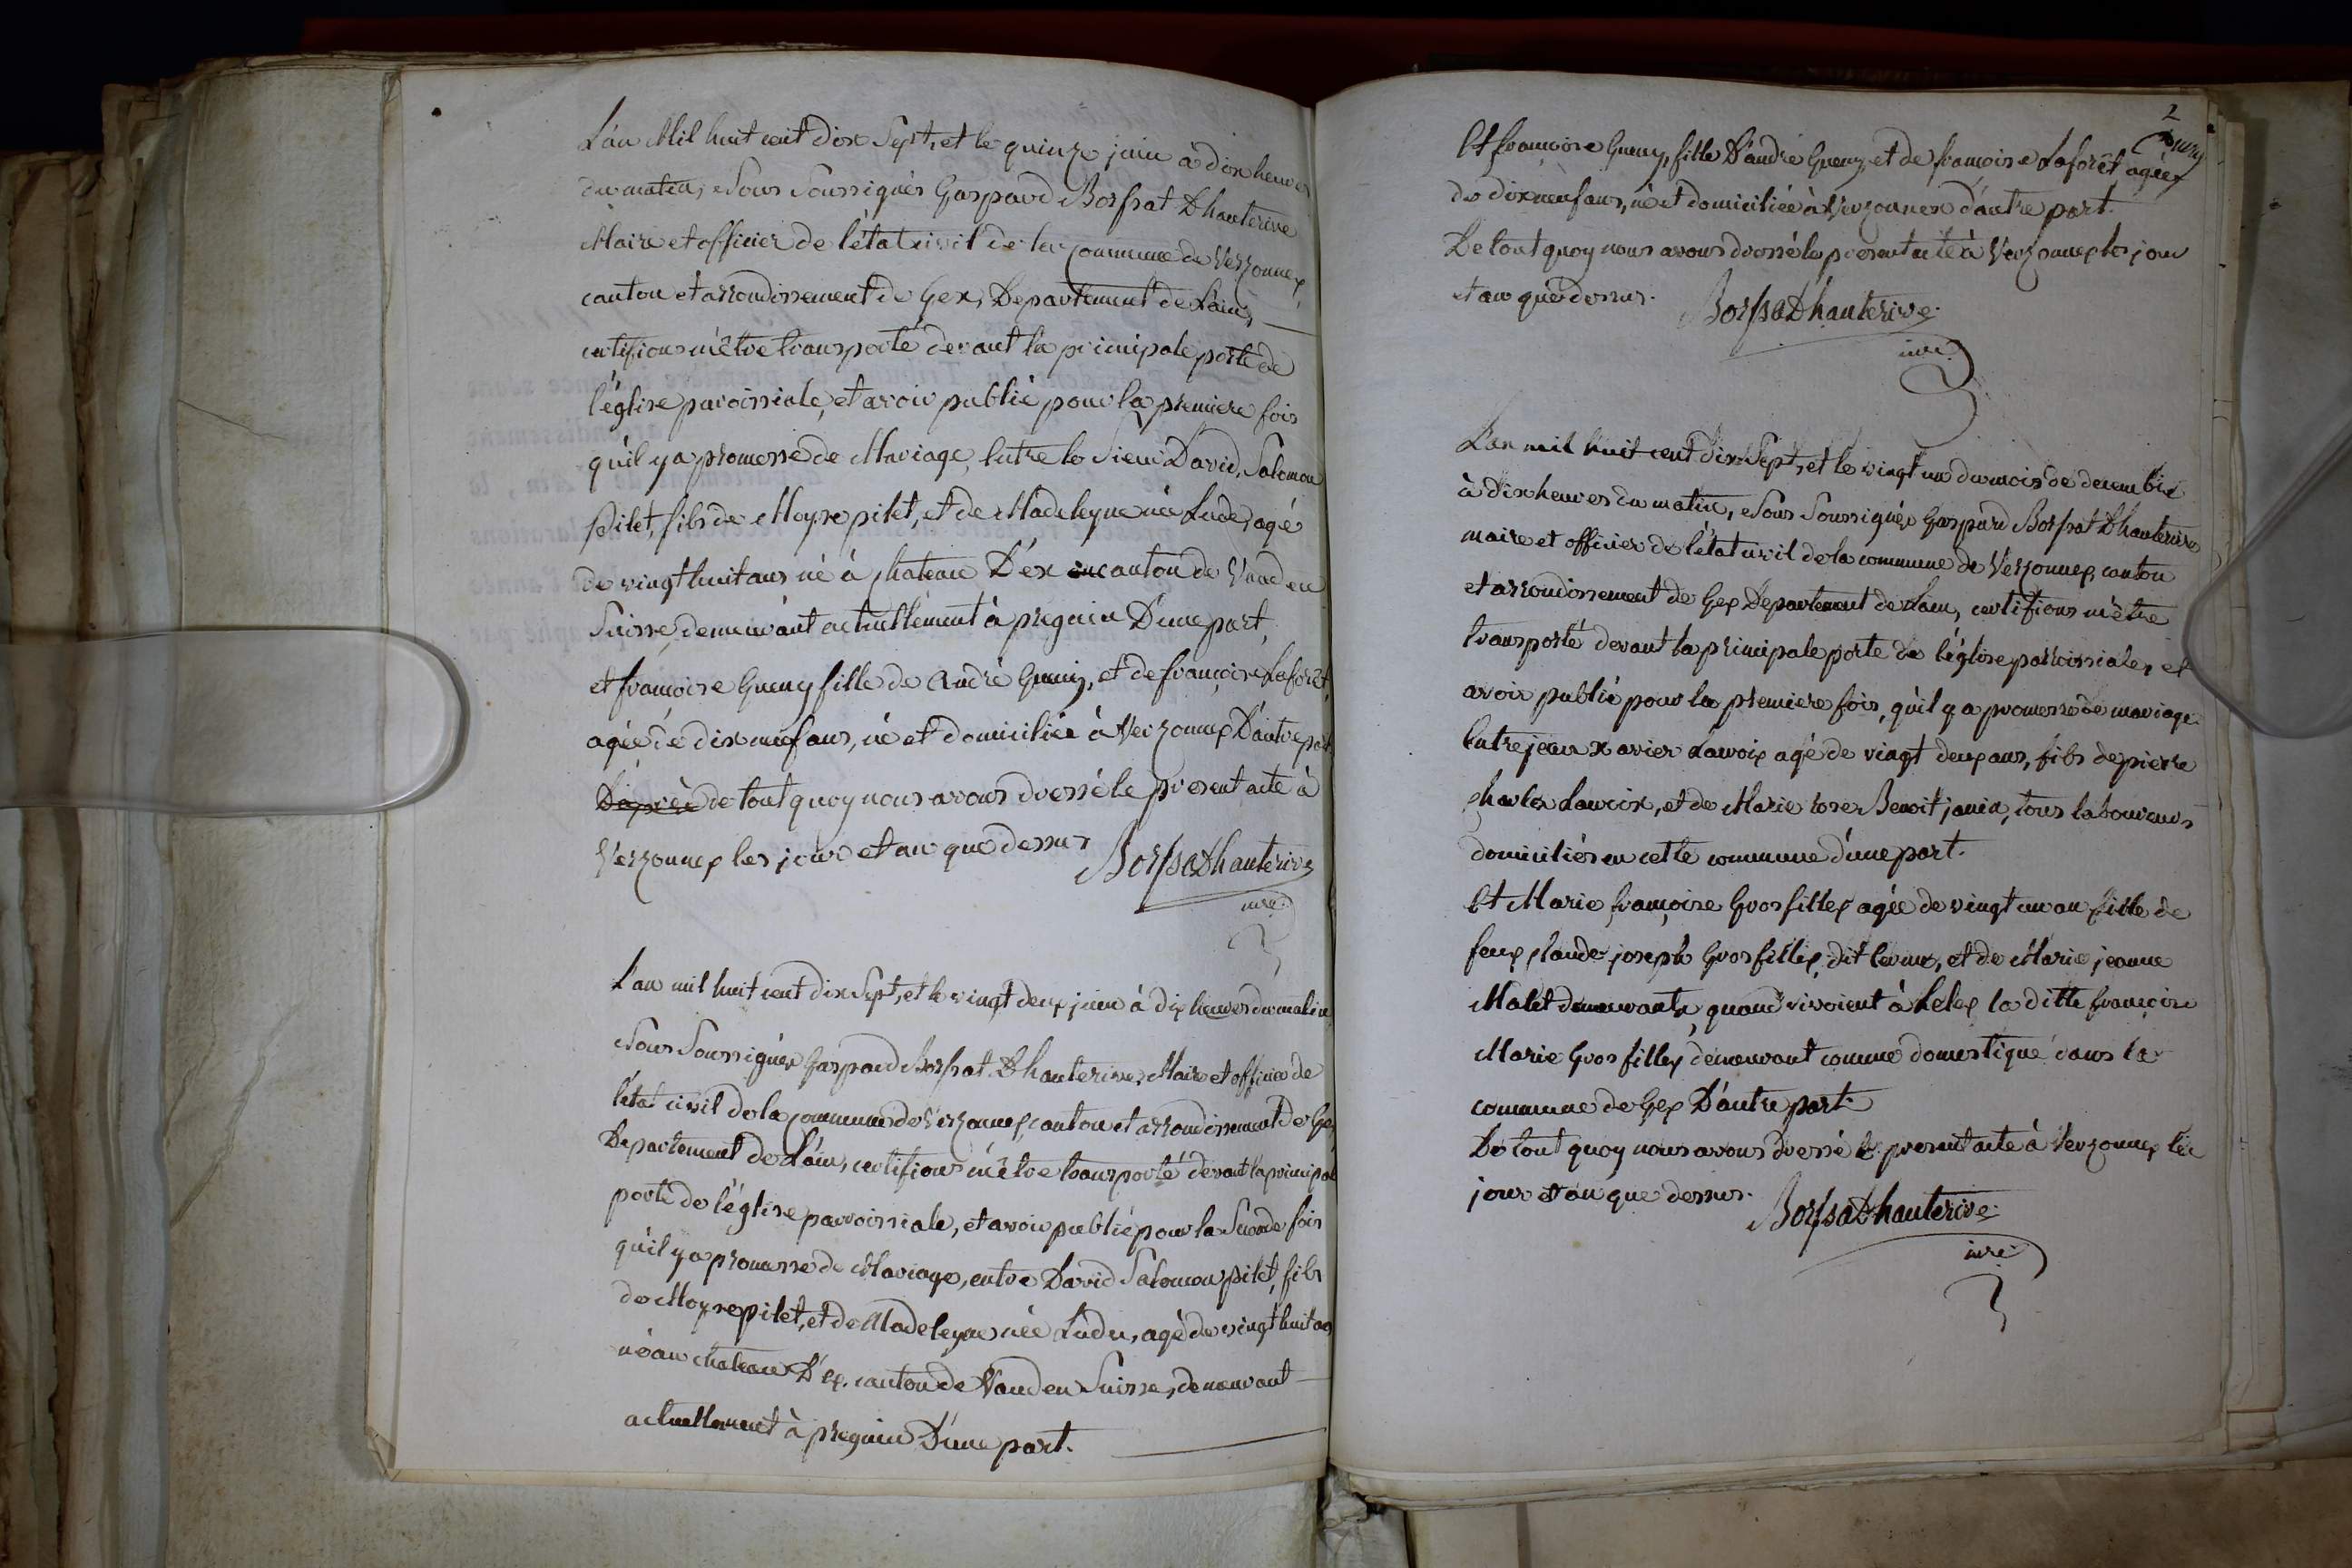 L'an Mil huit cent dix Sept, et le quinze juin à dix heures
du matin, Nous Soussignés Gaspard Borssat Dhauterive
Maire et officier de l'état civil de la Commune de Verzonnex,
canton et arrondissement de Gex, Departement de Lain,
certifions m'être transporté devant la principale porte de
l'église paroissiale, et avoir publié pour la premiere fois
qu'il y a promesse de Mariage, Entre le Sieur David, Salomon
pilet, fils de Moyse pilet, et de Madeleyne née Ludu, agé
de vingt huit ans né à Chateau D'ex en canton de Vaud en
Suisse, demeurant actuellement à pregnin D'une part,
et françoise Gueny fille de andré Gueny, et de françoise Laforêt,
agée de dix neuf ans, né et domiciliée à Verzonnex D'autre part,
D'après de tout quoy nous avons dressé le present acte à
Verzonnex les jour et an que dessus
Borssat Dhauterive
mre
L'an mil huit cent dix Sept, et le vingt deux juin à dix heures du matin
Nous Soussignés Gaspard Borssat Dhauterive, Maire et officier de
l'état civil de la Commune de Verzonnex, canton et arrondissement de Gex,
Departement de L'ain, certifions m'être transporté devant la principale
porte de l'église parroissiale, et avoir publié pour la Séconde fois
qu'il y a promesse de Mariage, entre David Salomon pilet, fils
de Moyse pilet, et de Madeleyne née Ludu, agé de vingt huit ans
né au chateau D'ex, canton de Vaud en Suisse, demeurant
actuellement à pregnin D'une part.
2
Et françoise Gueny, fille D'andré Gueny, et de françoise Laforêt agée
de dix neuf ans, né et domiciliée à Verzonnex d'autre part.
De tout quoy nous avons dressé le present acte à Verzonnex les jour
et an que dessus.
Borssat Dhauterive
mre
L'an mil huit cent dix Sept, et le vingt un du mois de decembre
à dix heures du matin, Nous Soussignés Gaspard Borssat Dhauterive
maire et officier de l'état civil de la commune de Verzonnex, canton
et arrondissement de Gex Departement de Lain, certifions m'être
transporté devant la principale porte de l'église parroissiale, et
avoir publié pour la premiere fois, qu'il y a promesse de mariage
Entre jean xavier Lavoix agé de vingt deux ans, fils de pierre
Charles Lavoix, et de Marie rose Benoit janin, tous laboureurs
domiciliés en cette commune d'une part.
Et Marie françoise Grosfillex agée de vingt un an fille de
feux Claude joseph Grosfillex, dit et de Marie jeanne
Malet demeurants, quand vivoient à Lelex la ditte françoise
Marie Grosfillex demeurant comme domestique dans la
commune de Gex D'autre part.
De tout quoy nous avons dressé le present acte à Verzonnex les
jour et an que dessus.
Borssat Dhauterive
mre